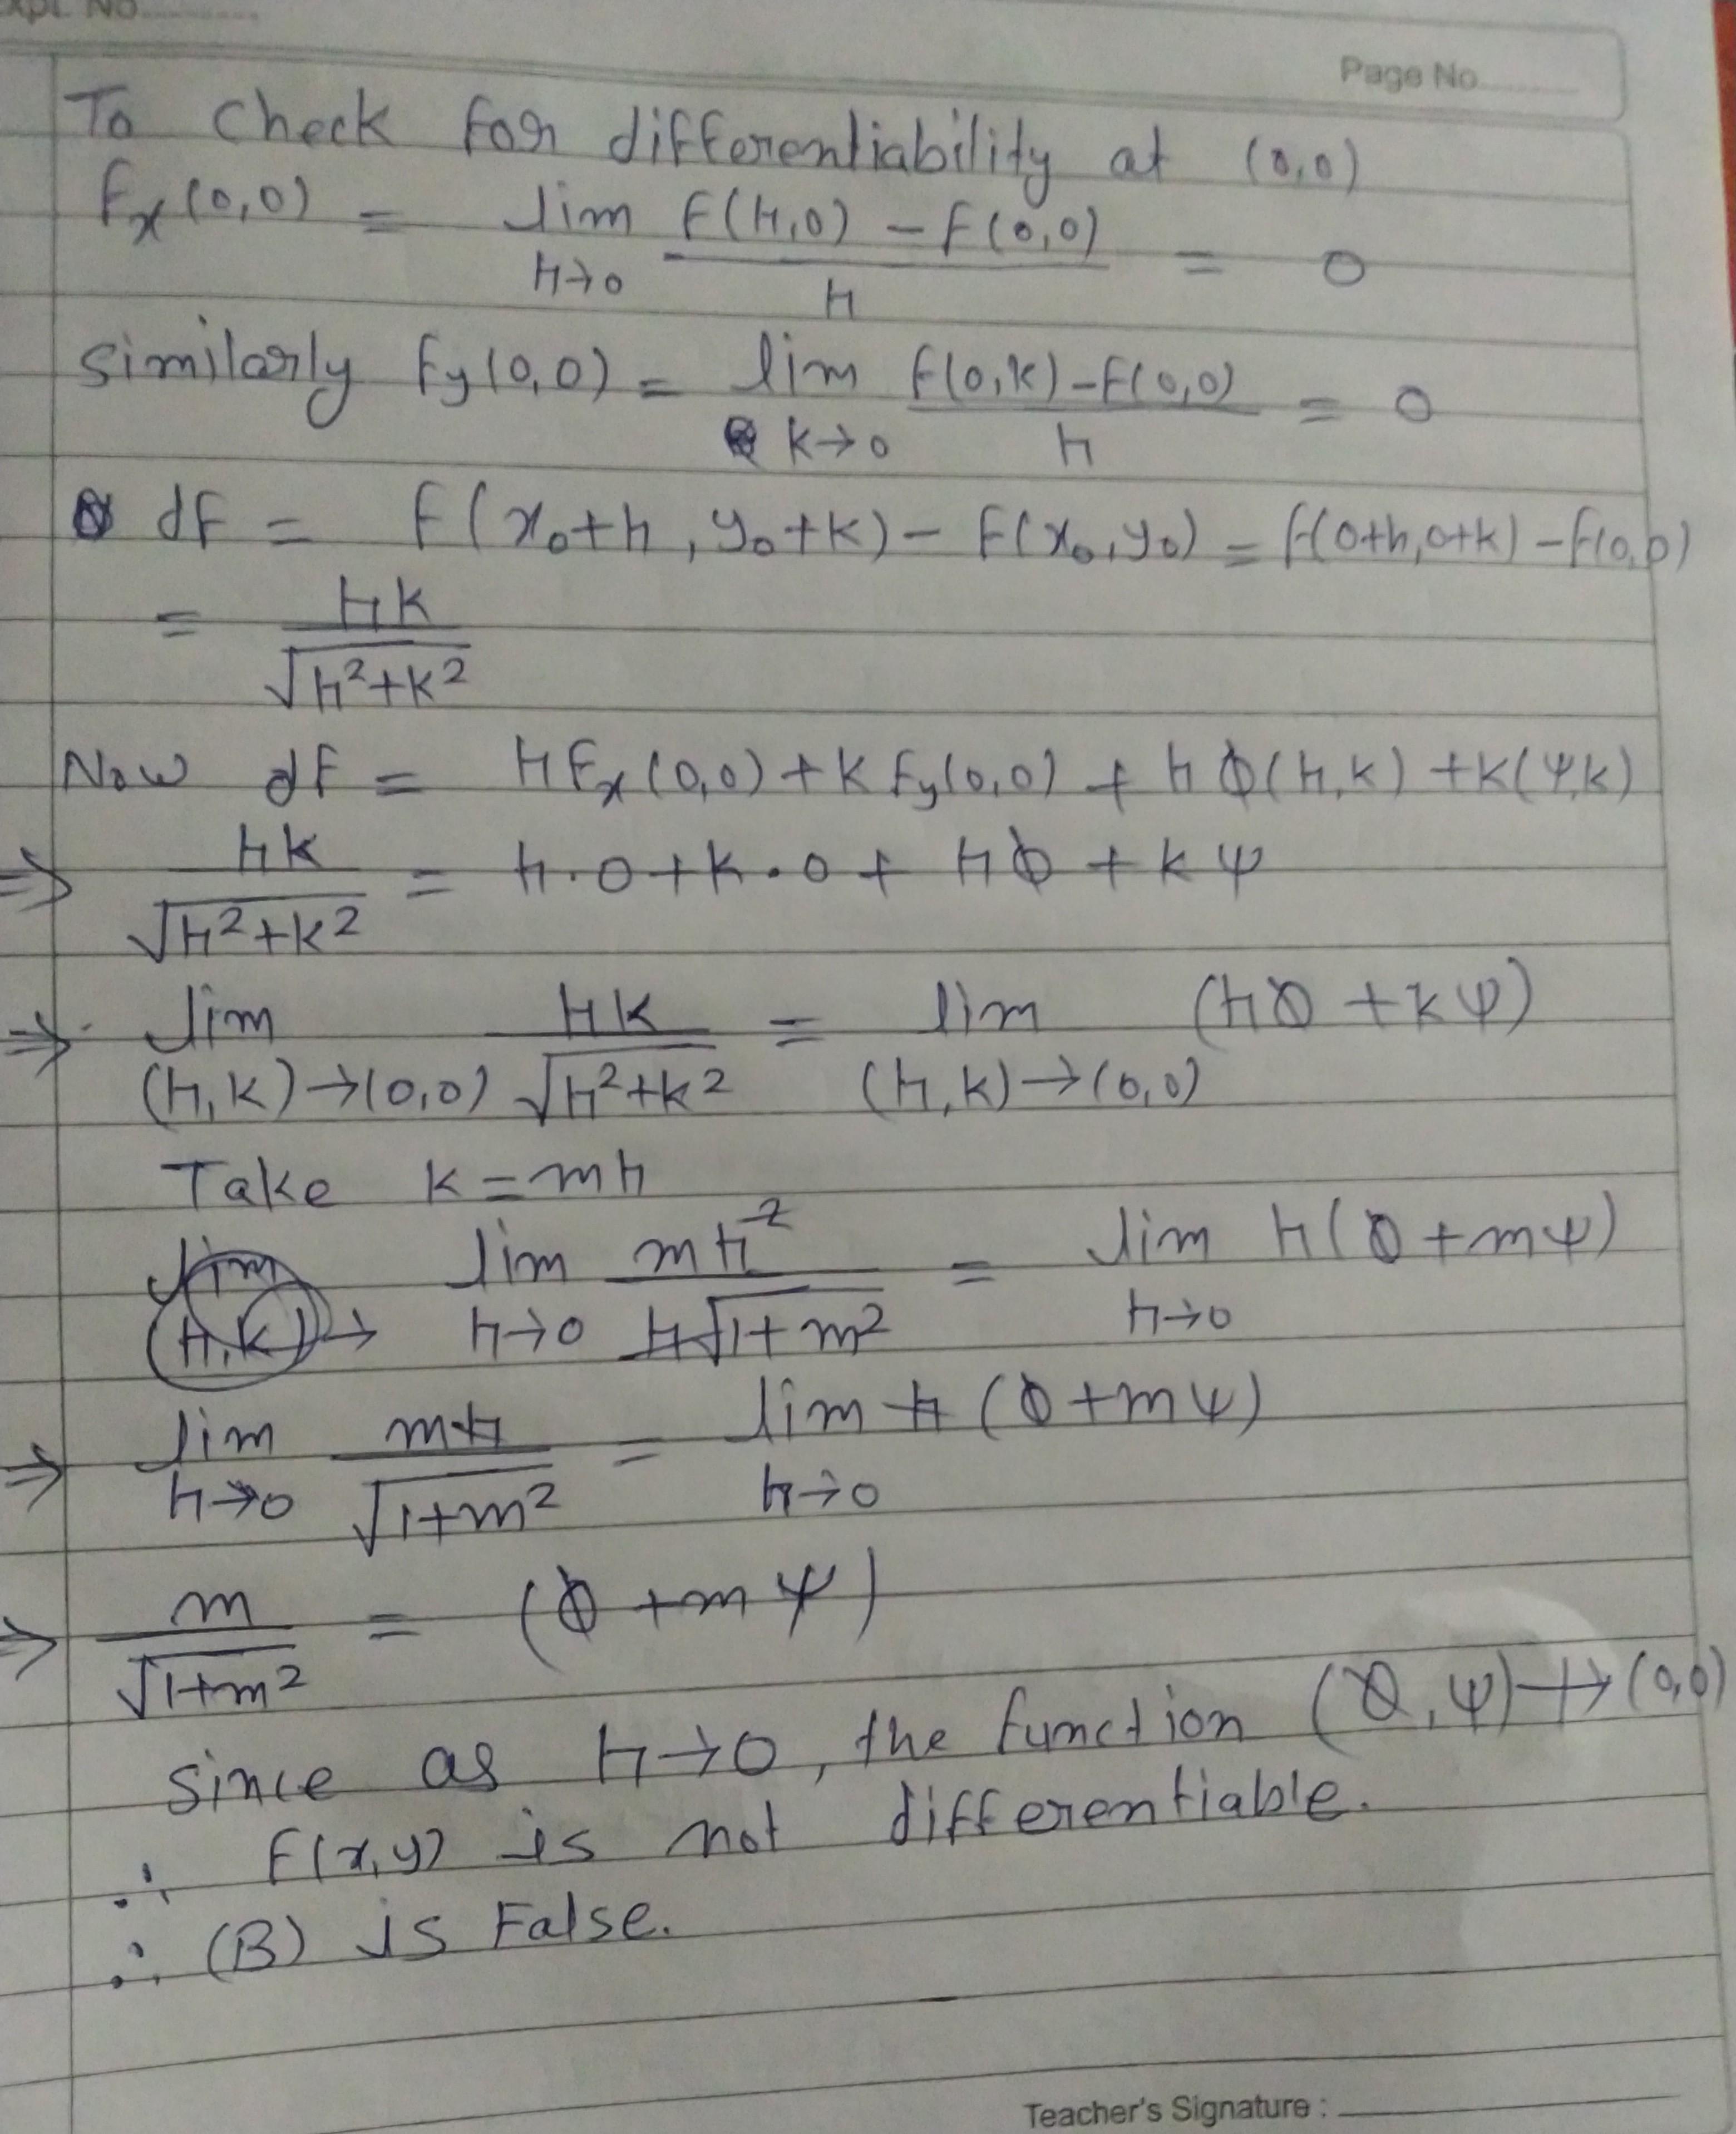 Expt. No.
Page No.
To check for differentiability at (0,0)
fx(0,0) = lim h→0 f(h,0) - f(0,0) / h = 0
similarly fy(0,0) = lim k→0 f(0,k) - f(0,0) / h = 0
df = f(x₀+h, y₀+k) - f(x₀,y₀) = f(0+h,0+k) - f(0,0)
= hk / √h²+k²
Now df = h fx(0,0) + k fy(0,0) + h ϕ(h,k) + k(ψ,k)
⇒ hk / √h²+k² = h.0 + k.0 + hϕ + kψ
⇒ lim (h,k)→(0,0) hk / √h²+k² = lim (h,k)→(0,0) (hϕ + kψ)
Take k = mh
lim h→0 mh² / h√1+m² = lim h→0 h(ϕ + mψ)
⇒ lim h→0 mh / √1+m² = lim h→0 h (ϕ + mψ)
⇒ m / √1+m² = (ϕ + mψ)
since as h→0, the function (ϕ,ψ) ↛ (0,0)
∴ f(x,y) is not differentiable.
∴ (B) is False.
Teacher's Signature :